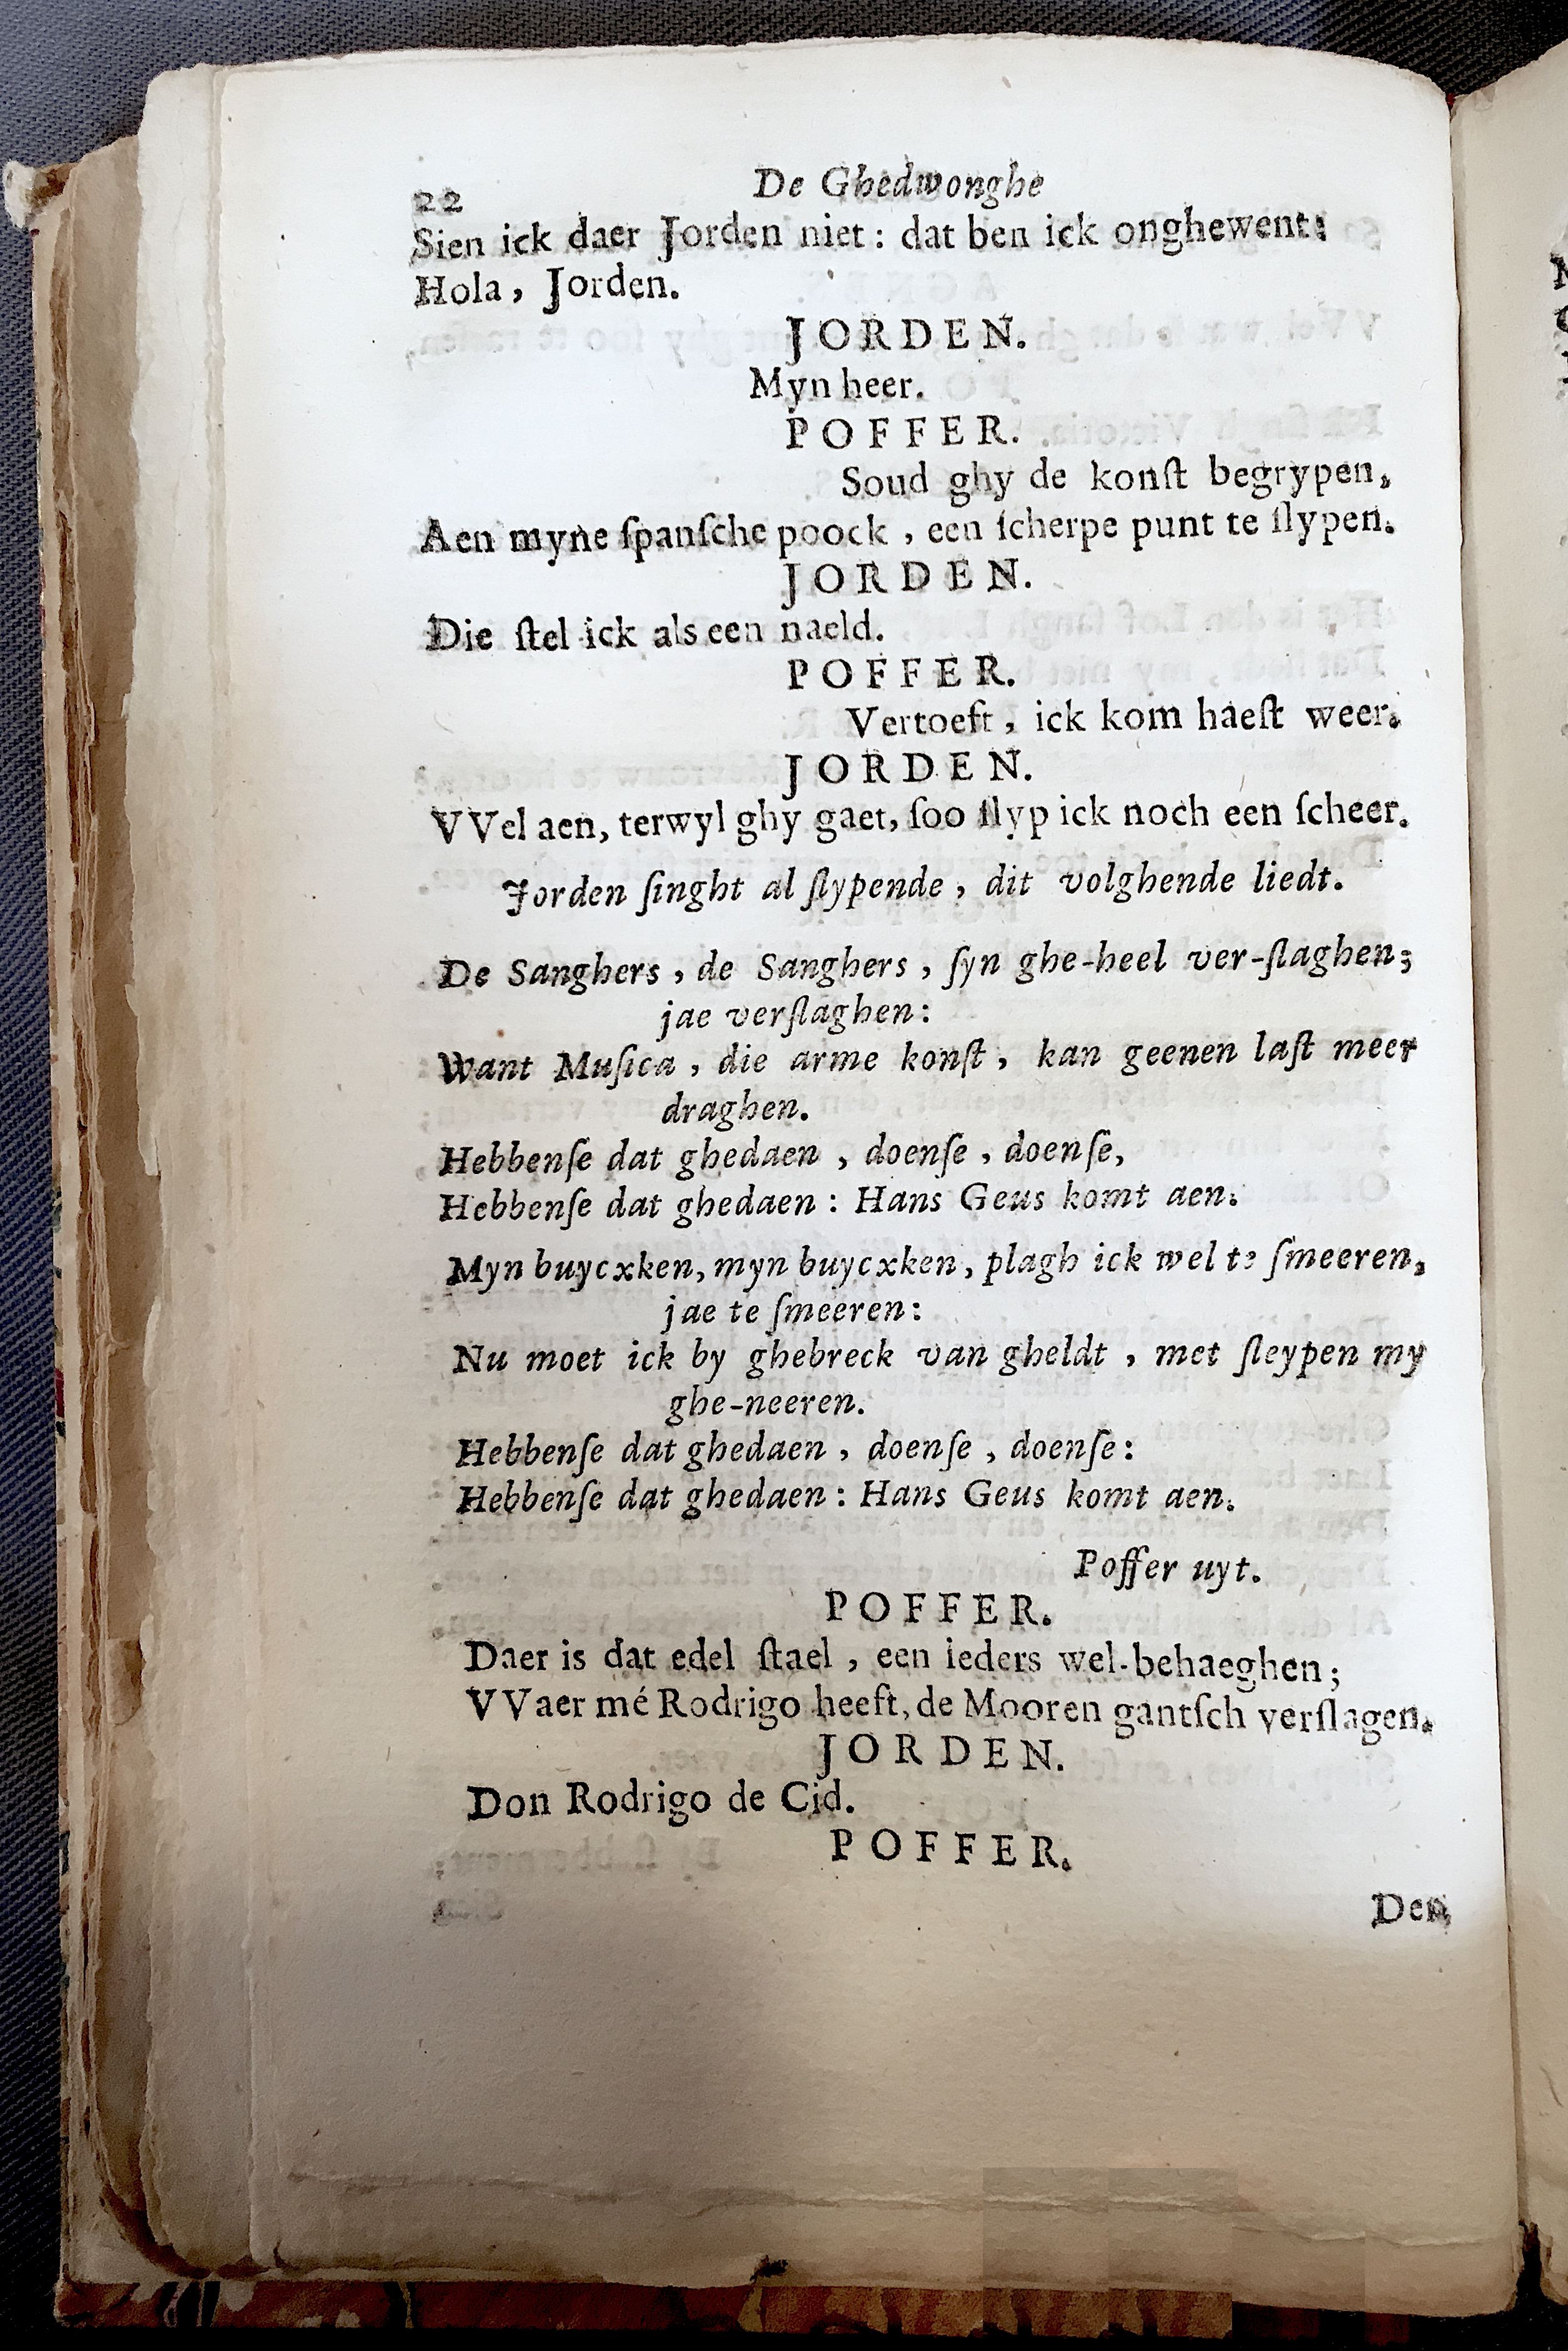 22 De Ghedwonghe
Sien ick daer Jorden niet: dat ben ick onghewent:
Hola, Jorden.
JORDEN.
Myn heer.
POFFER.
Soud ghy de konſt begrypen,
Aen myne ſpanſche poock, een ſcherpe punt te ſlypen.
JORDEN.
Die ſtel ick als een naeld.
POFFER.
Vertoeft, ick kom haeſt weer.
JORDEN.
VVel aen, terwyl ghy gaet, ſoo ſlyp ick noch een ſcheer.
Jorden ſinght al ſlypende, dit volghende liedt.
De Sanghers, de Sanghers, ſyn ghe-heel ver-ſlaghen;
jae verſlaghen:
Want Muſica, die arme konſt, kan geenen laſt meer
draghen.
Hebbenſe dat ghedaen, doenſe, doenſe,
Hebbenſe dat ghedaen: Hans Geus komt aen.
Myn buycxken, myn buycxken, plagh ick wel te ſmeeren,
jae te ſmeeren:
Nu moet ick by ghebreck van gheldt, met ſleypen my
ghe-neeren.
Hebbenſe dat ghedaen, doenſe, doenſe:
Hebbenſe dat ghedaen: Hans Geus komt aen.
Poffer uyt.
POFFER.
Daer is dat edel ſtael, een ieders wel-behaeghen;
VVaer mé Rodrigo heeft, de Mooren gantſch verſlagen.
JORDEN.
Don Rodrigo de Cid.
POFFER.
Den